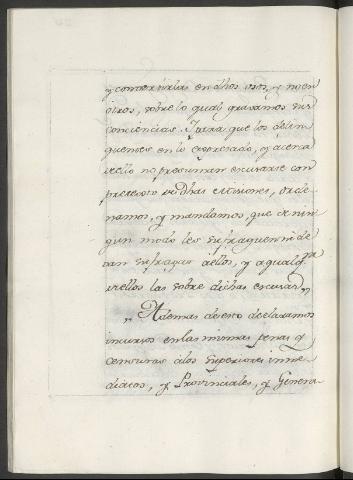 y contarlas en dhos usos, y no en
otros, sobre lo qual gravamos sus
conciencias. Y para que los delin-
quentes en lo expresado, y acerca
de ello no presuman escusarse con
pretexto de dhas exempciones, orde-
namos, y mandamos, que de nin-
gun modo les sufraguen ni de-
van sufragar a ellos, y a qualqra
de ellos las sobre dichas escusas,,
,, Ademas de esto declaramos
incursos en las mismas penas y
censuras a los superiores inme-
diatos, y Provinciales, y Genera-